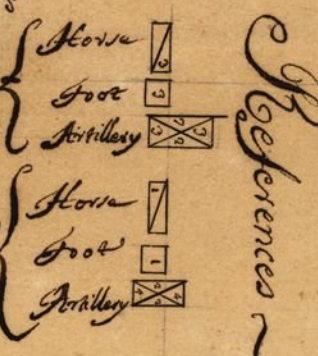 References
Horse
Foot
Artillery
Horse
1
Foot
1
Artillery